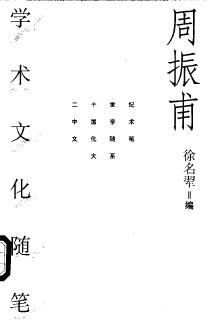 周振甫
学术文化随笔
徐名翚=编
二十世纪
中国学术
文化随笔
大系